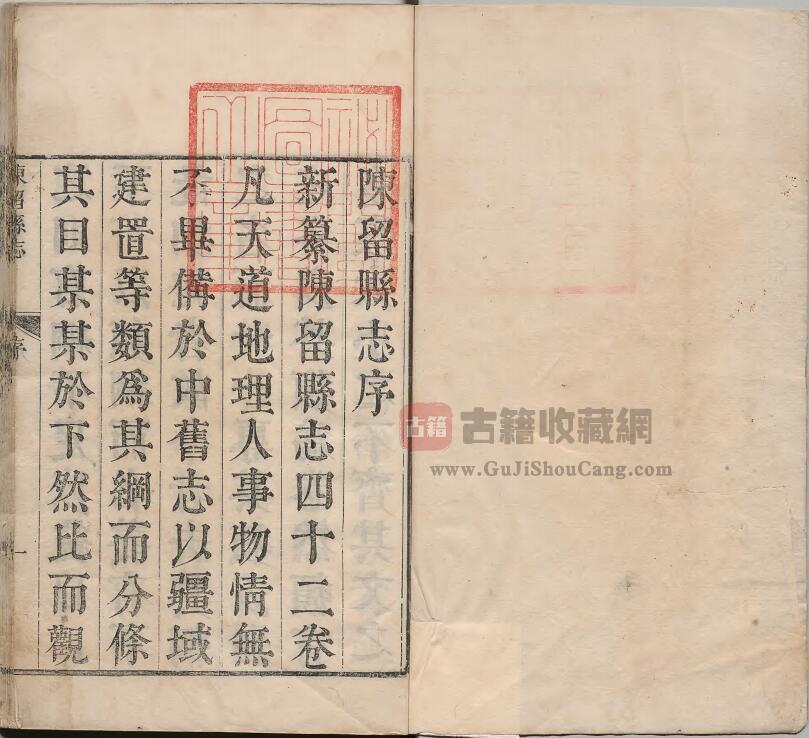 陳留縣志序
新纂陳留縣志四十二卷
凡天道地理人事物情無
不畢備於中舊志以疆域
建置等類為其綱而分條
其目某某於下然比而觀
陳留縣志 序 一
古籍 古籍收藏網
www.GuJiShouCang.com